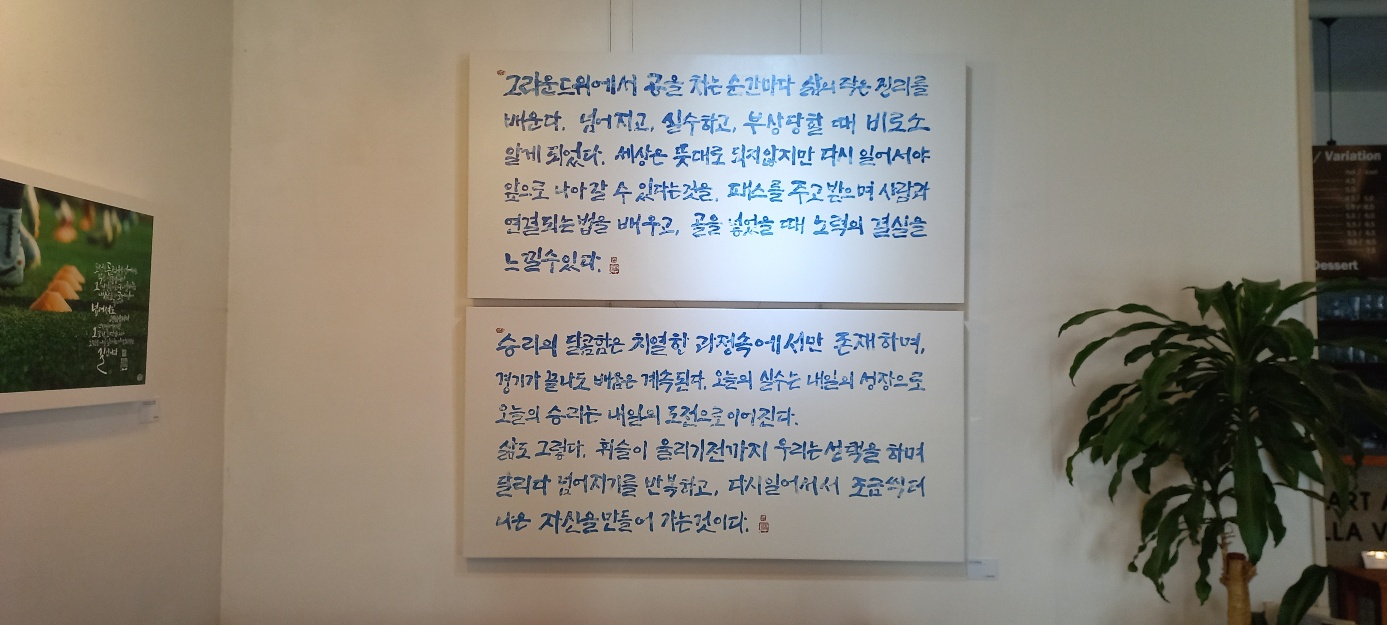 그라운드위에서 공을 차는 순간마다 삶의 작은 진리를
배운다. 넘어지고, 실수하고, 부상당할 때 비로소
알게 되었다. 세상은 뜻대로 되지않지만 다시 일어서야
앞으로 나아갈 수 있다는것을. 패스를 주고 받으며 사람과
연결되는법을 배우고, 골을 넣었을 때 노력의 결실을
느낄수있다.
승리의 달콤함은 치열한 과정속에서만 존재하며,
경기가 끝나도 배움은 계속된다. 오늘의 실수는 내일의 성장으로
오늘의 승리는 내일의 도전으로이어진다.
삶도 그렇다. 휘슬이 울리기전까지 우리는선택을 하며
달리다 넘어지기를 반복하고, 다시일어서서 조금씩더
나은 자신을만들어 가는것이다.
/ Variation
Dessert
ART